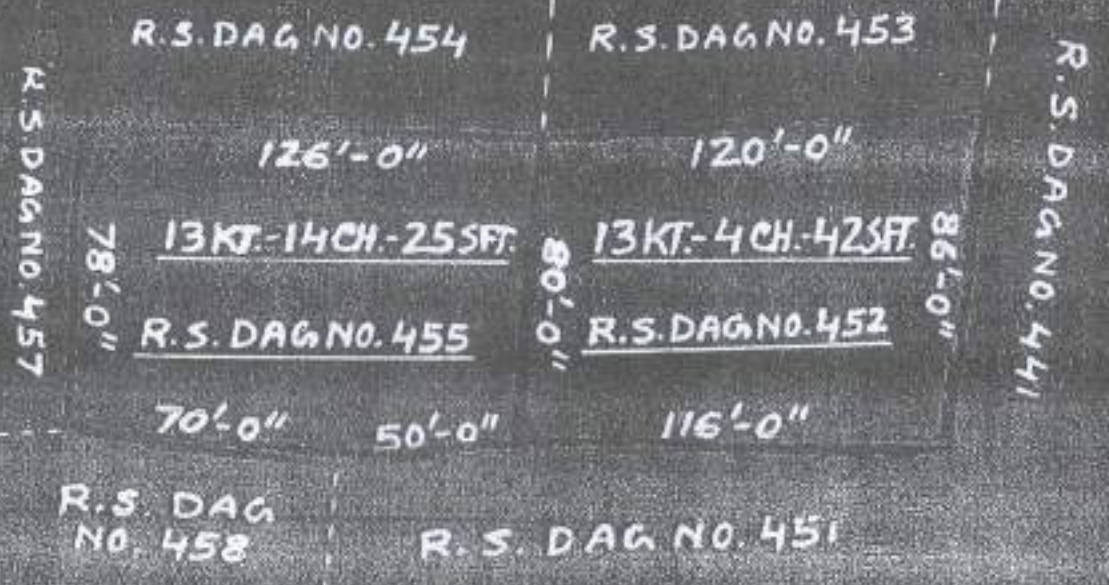 R.S. DAG NO. 454
R.S. DAG NO. 453
R.S. DAG NO. 457
R.S. DAG NO. 441
126'-0"
120'-0"
78'-0"
13 KT.-14 CH.-25 SFT.
80'-0"
13 KT.-4 CH.-42 SFT.
86'-0"
R.S. DAG NO. 455
R.S. DAG NO. 452
70'-0"
50'-0"
116'-0"
R.S. DAG
NO. 458
R.S. DAG NO. 451